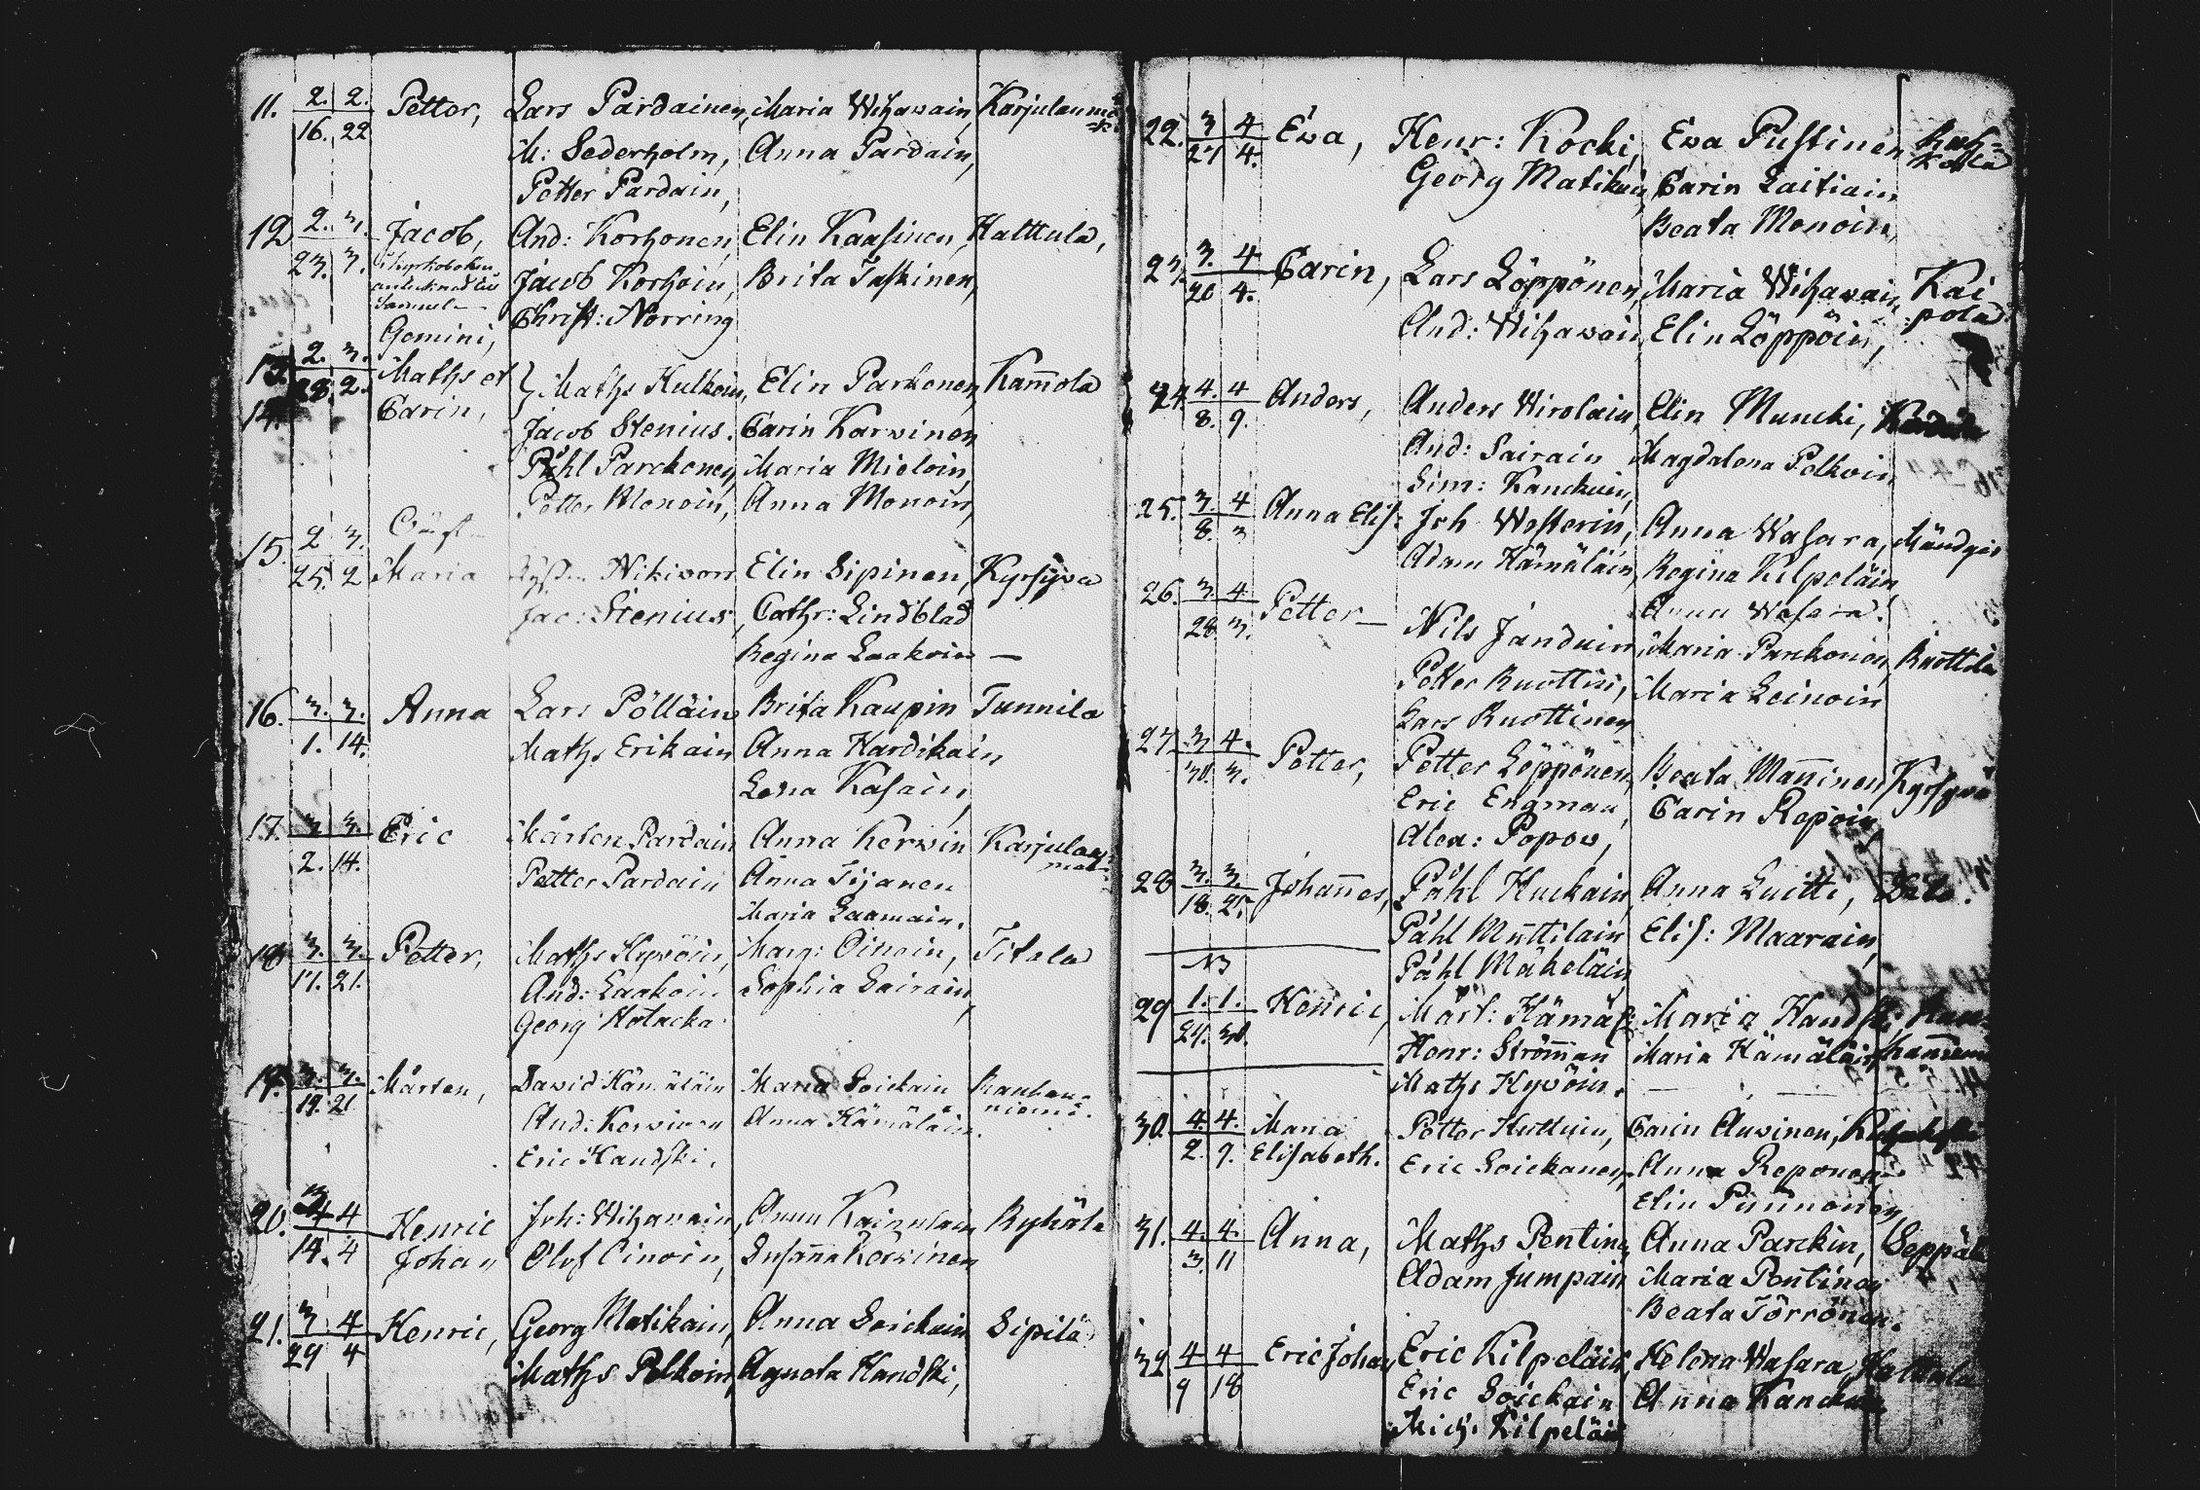 11. 2. 2. Petter, Lars Pardainen, Maria Wihawain, Karjulanmä
16. 22 M: Sederholm, Anna Pardain,
Petter Pardain,
12 2. 3. Jacob, And: Korhonen, Elin Kaasinen, Halttula,
23. 3. Jacob Korhoin, Brita Taskinen,
Samuel Christ: Norring
Gemini,
13. 2. 3. Maths et } Maths Hulkoin, Elin Parkonen, Kamola
14. 28. 2. Carin, Jacob Stenius. Carin Karvinen
Påhl Parckonen, Maria Mieloin,
Petter Monoin, Anna Monoin,
15. 2 3. Nikivorr Elin Sipinen, Kyrsyva
25. 2 Maria Jac: Stenius, Cathr: Lindblad
Regina Laakoin —
16. 3. 3. Anna Lars Pölläin Brita Kaupin Tunnila
1. 14. Maths Erikain Anna Hardikain
Lena Kasain,
17. 3 3. Eric Mårten Pardain Anna Kervin Karjulan
2. 14. Petter Pardain Anna Tijanen mäk
Maria Laamain.
18 3. 3. Petter, Maths Hyvöin, Marg: Oinoin, Titala
17. 21. And: Laakoin Sophia Sairain,
Georg Holacka
19. 3. 3. Mårten, David Hämäläin Maria Soickain Rauhan
19. 21 And: Kervinen Anna Hämäläin. niemi.
Eric Handski.
20. 4 4 Henric Joh: Wihavain, Anna Kainulain Ryhälä
14. 4 Johan Olof Oinoin, Susanna Kervinen
21. 3 4 Henric, Georg Matikain, Anna Soickain Sipilä
29 4 Maths Polkoin, Agneta Handski,
22. 3 4 Ewa, Henr: Kocki, Ewa Pustinen
27 4. Georg Matikain, Carin Laitiain
Beata Monoin,
23. 3. 4 Carin, Lars Löppönen, Maria Wihawain, Kai
20 4. And: Wihawain, Elin Löppöin, pola
24. 4. 4 Anders, Anders Wirolain, Elin Muncki,
8. 9. And: Sairain Magdalena Polkoin
Sim: Kanckuin,
25. 3. 4 Anna Elis: Joh Westerin, Anna Wasara, Mändyis
8. 3 Adam Hämäläin, Regina Kilpeläin
26. 3. 4 Petter — Anna Wasara.
28. 3. Nils Janduin, Maria Parckonen, Ruottila
Petter Ruottin, Maria Leinoin
Lars Ruottinen
27 3 4. Petter, Petter Löppönen, Beata Manninen, Kyrsyvä
30. 3. Eric Engman, Carin Repoin
Alex: Popow,
28 3. 3. Johannes, Påhl Huckain, Anna Luitti,
18. 25. Påhl Muttilain Elis: Maarain,
NB Påhl Mäkeläin
29 1. 1. Henric, Mårt: Hämäl: Maria Handski
24. 30. Henr: Ströman Maria Hämäläin,
Maths Hyvöin. —
30. 4. 4. Maria Petter Huttuin, Carin Auvinen,
2. 9. Elisabeth. Eric Soickanen, Anna Reponen
Elin Pünnönen
31. 4. 4. Anna, Maths Pentinen Anna Parckin, Seppälä
3. 11 Adam Jumpain Maria Pentinen
Beata Törrönen.
32 4 4 Eric Johan, Eric Kilpeläin, Helena Wasara, Halttula
9 18 Eric Soickain Anna Kanckuin
Mich: Kilpeläin